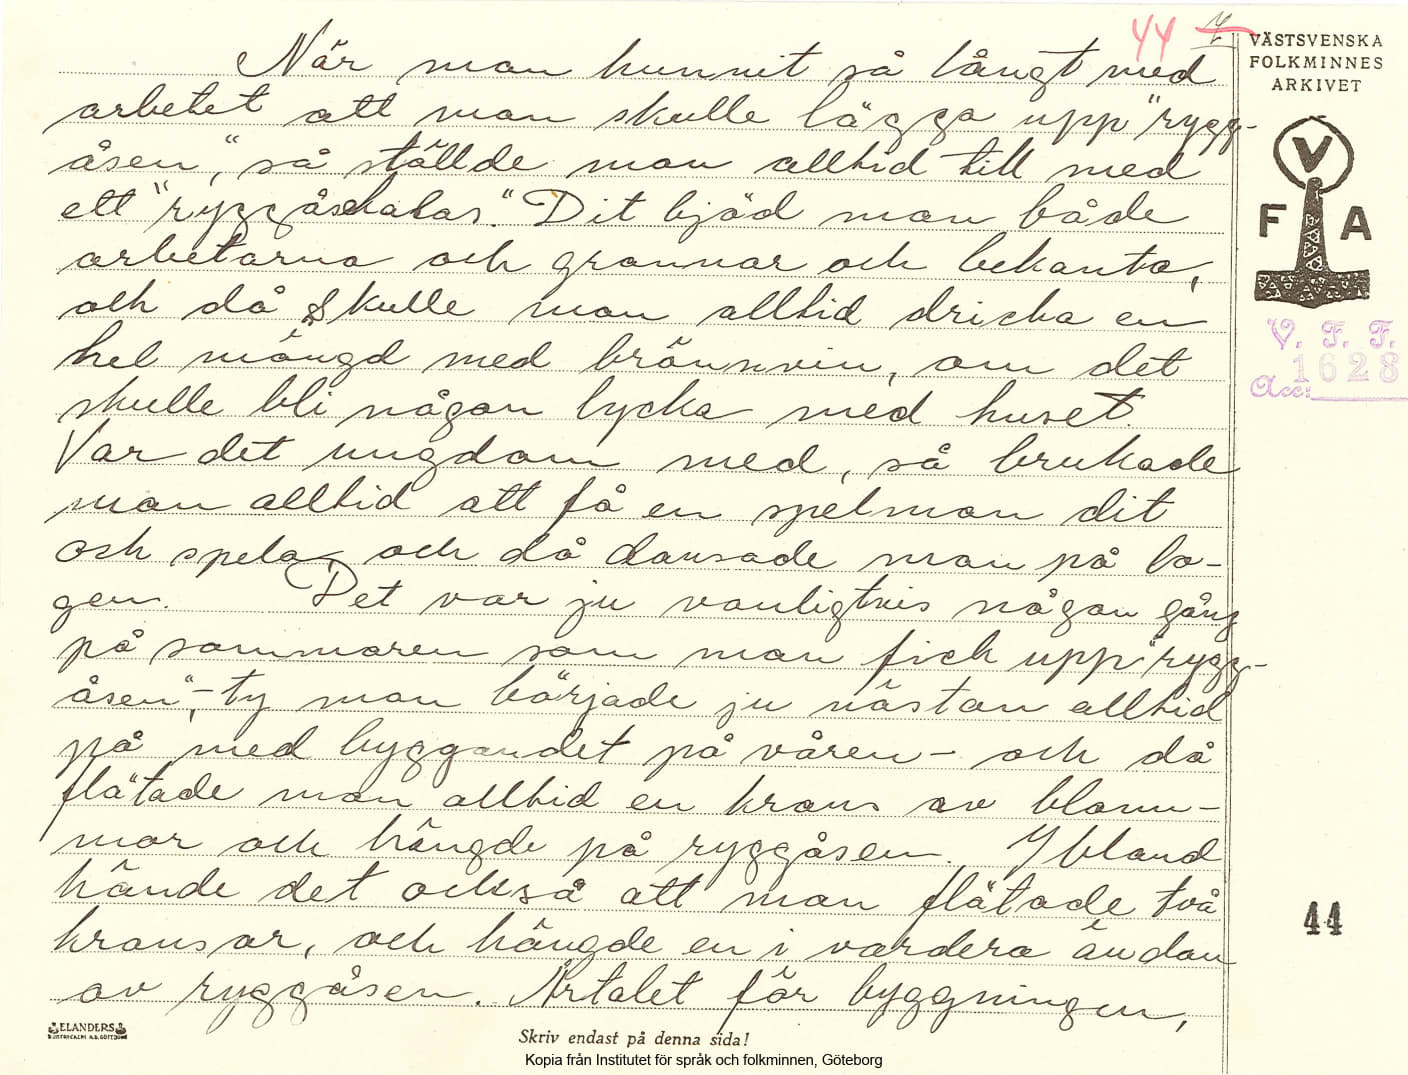 44 7
VÄSTSVENSKA
FOLKMINNES
ARKIVET
När man hunnit så långt med
arbetet att man skulle lägga upp "rygg-
åsen", så ställde man alltid till med
ett "ryggåsakalas". Dit bjöd man både
arbetarna och grannar och bekanta,
och då skulle man alltid dricka en
hel mängd med brännvin, om det
skulle bli någon lycka med huset.
Var det ungdom med, så brukade
man alltid att få en spelman dit
och spela och då dansade man på lo-
gen. Det var ju vanligtvis någon gång
på sommaren som man fick upp "rygg-
åsen", – ty man började ju nästan alltid
på med byggandet på våren – och då
flätade man alltid en krans av blom-
mor och hängde på ryggåsen. Ibland
hände det också att man flätade två
kransar, och hängde en i vardera ändan
av ryggåsen. Årtalet för byggningen,
V
F A
V. F. F.
Acc: 1628
44
ELANDERS
Skriv endast på denna sida!
Kopia från Institutet för språk och folkminnen, Göteborg